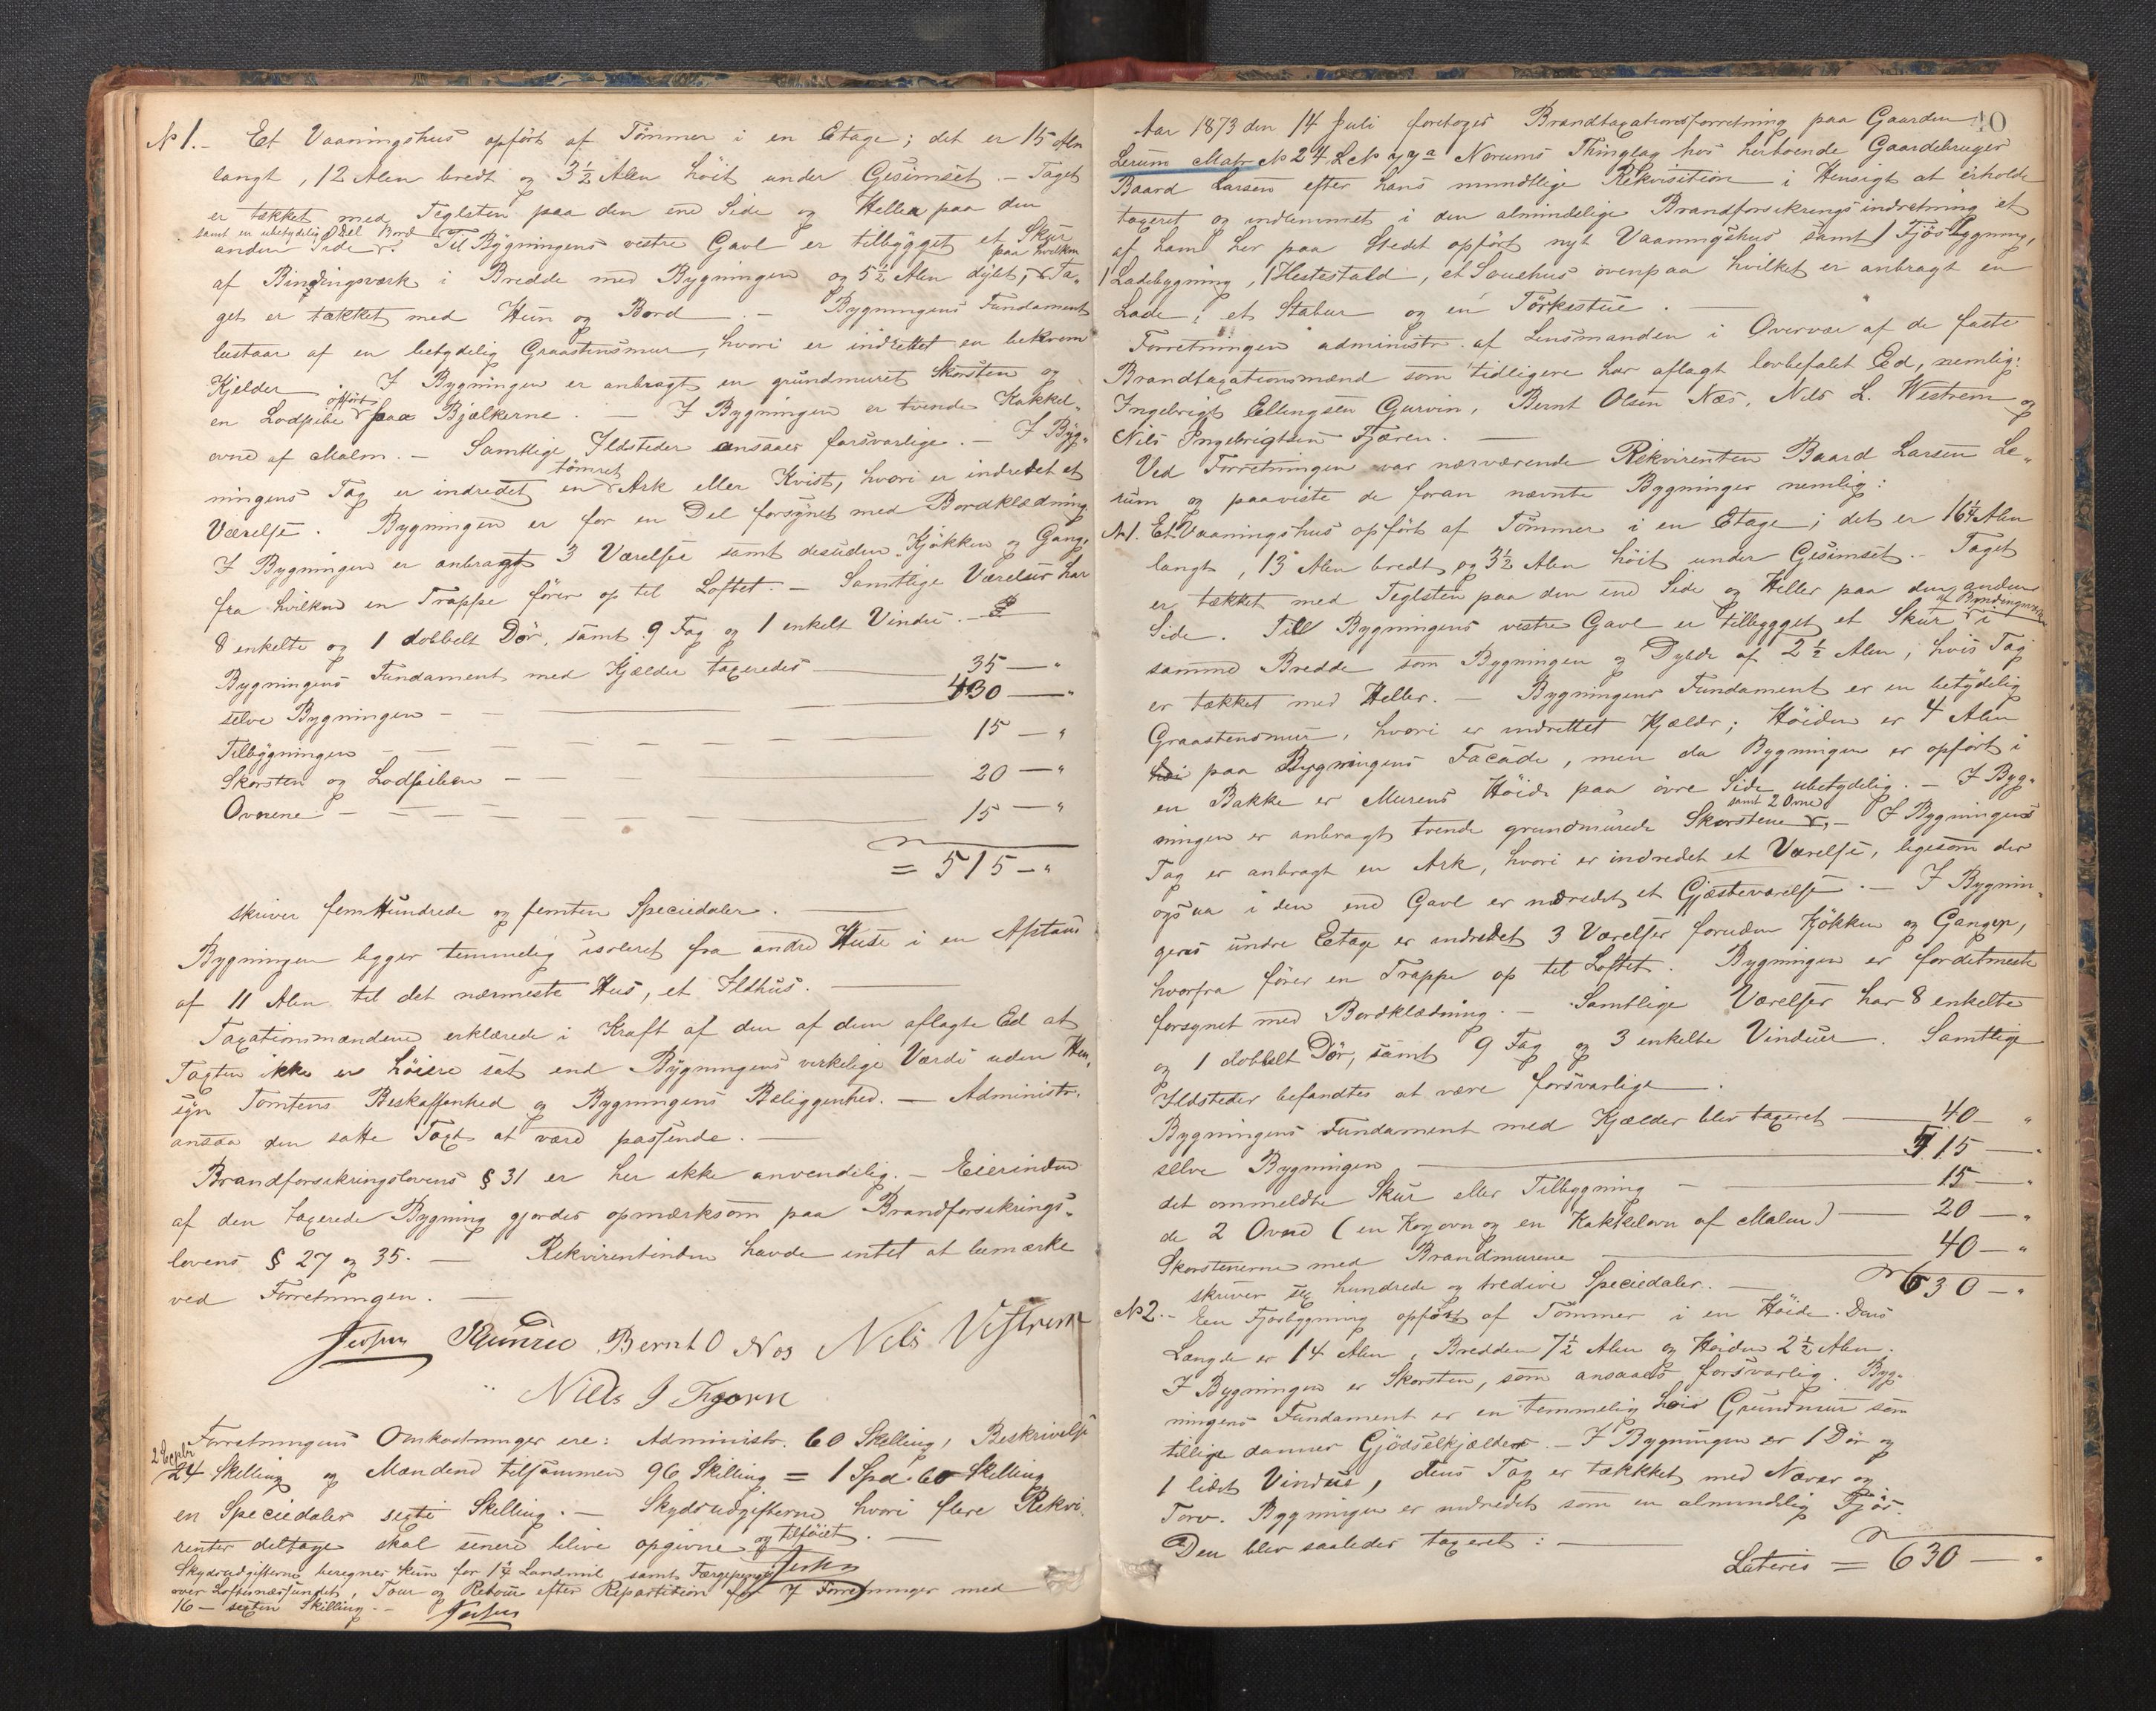 No 1. - Et Vaaningshus opført af Tømmer i en Etage; det er 15 Alen
langt, 12 Alen bredt og 3½ Alen høit under Gesimset. - Taget
er tækket med Teglsten paa den ene Side og Heller paa den
samt en ubetydelig Del Bord
anden Side. Til Bygningens vestre Gavl er tilbygget et Skur
paa hvilken
af Bindingsværk i Bredde med Bygningen og 5½ Alen dybt, Ta-
get er tækket med Hun og Bord. - Bygningens Fundament
bestaar af en betydelig Graastensmur, hvori er indrettet en bekvem
Kjelder. I Bygningen er anbragt en grundmuret Skorsten og
en Lodpibe opført paa Bjælkerne. - I Bygningen er tvende Kakkel-
ovne af Malm. - Samtlige Ildsteder ansaaes forsvarlige. - I Byg-
ningens Tag er indredet en tømret Ark eller Kvist, hvori er indredet et
Værelse. Bygningen er for en Del forsynet med Bordklædning.
I Bygningen er anbragt 3 Værelser samt desuden Kjøkken og Gang,
fra hvilken en Trappe fører op til Loftet. - Samtlige Værelser har
8 enkelte og 1 dobbelt Dør, samt 9 Fag og 1 enkelt Vindu. -
Bygningens Fundament med Kjælder taxeredes — 35 — "
selve Bygningen — 430 — "
Tilbygningen — 15 — "
Skorsten og Lodpiben — 20 — "
Ovnene — 15 — "
= 515 — "
skriver fem Hundrede og femten Speciedaler. —
Bygningen ligger temmelig isoleret fra andre Huse i en Afstand
af 11 Alen til det nærmeste Hus, et Ildhus. —
Taxationsmændene erklærede i Kraft af den af dem aflagte Ed at
Taxten ikke er høiere sat end Bygningens virkelige Værdi uden Hen-
syn Tomtens Beskaffenhed og Bygningens Beliggenhed. - Administr.
ansaa den satte Taxt at være passende. —
Brandforsikringslovens § 31 er her ikke anvendelig. - Eierinden
af den taxerede Bygning gjordes opmærksom paa Brandforsikrings-
lovens § 27 og 35. — Rekvirentinden havde intet at bemærke
ved Forretningen. —
Bernt O Nes Nils Vestrem
Niels I Fjorn
Forretningens Omkostninger ere: Administr. 60 Skilling, Beskrivelse
24 Skilling og Mændene tilsammen 96 Skilling = 1 Spd 60 Skilling
en Speciedaler sexti Skilling. - Skydsudgifterne hvori flere Rekvi-
renter deltage skal senere blive opgivne og tilføiet. —
Skydsudgifterne beregnes kun for 1¼ Landmil samt Færgepenge
over Loftesnæssundet, Tour og Retour efter Repartition for 7 Forretninger med
16 - sexten Skilling. -
40
Aar 1873 den 14 Juli foretoges Brandtaxationsforretning paa Gaarden
Lerum Matr No 24 L No 77a Norums Thinglag hos hertoende Gaardebruger
Baard Larsen efter hans mundtlige Rekvisition i Hensigt at erholde
taxeret og indlemmet i den almindelige Brandforsikringsindretning et
af ham her paa Stedet opført nyt Vaaningshus samt 1 Fjøsbygning,
1 Ladebygning, 1 Hestestald, et Souehus ovenpaa hvilket er anbragt en
Lade; et Stabur og en Tørkestue.
Forretningen administr. af Lensmanden i Overvær af de faste
Brandtaxationsmænd som tidligere har aflagt lovbefalet Ed, nemlig:
Ingebrigt Ellingsen Gurvin, Bernt Olsen Næs, Nils L. Westrem og
Nils Ingebrigtsen Fjæren. —
Ved Forretningen var nærværende Rekvirenten Baard Larsen Le-
rum og paaviste de foran nævnte Bygninger nemlig:
No 1. Et Vaaningshus opført af Tømmer i en Etage; det er 16¼ Alen
langt, 13 Alen bredt og 3½ Alen høit under Gesimset. - Taget
er tækket med Teglsten paa den ene Side og Heller paa den anden
Side. Til Bygningens vestre Gavl er tilbygget et Skur af Bindingsværk i
samme Bredde som Bygningen og Dybde af 2½ Alen, hvis Tag
er tækket med Heller. - Bygningens Fundament er en betydelig
Graastensmur, hvori er indrettet Kjælder; Høiden er 4 Alen
paa Bygningens Facade, men da Bygningen er opført i
en Bakke er Murens Høide paa øvre Side ubetydelig. - I Byg-
ningen er anbragt tvende grundmurede Skorstene samt 2 Ovne. - I Bygningens
Tag er anbragt en Ark, hvori er indredet et Værelse, ligesom der
ogsaa i den ene Gavl er indredet et Gjæsteværelse. - I Bygnin-
gens undre Etage er indredet 3 Værelser foruden Kjøkken og Ganger,
hvorfra fører en Trappe op til Loftet. Bygningen er fordetmeste
forsynet med Bordklædning. - Samtlige Værelser har 8 enkelte
og 1 dobbelt Dør, samt 9 Fag og 3 enkelte Vinduer. Samtlige
Ildsteder befandtes at være forsvarlige. —
Bygningens Fundament med Kjælder blev taxeret — 40 — "
selve Bygningen — 515 — "
det ommeldte Skur eller Tilbygning — 15 — "
de 2 Ovne (en Kogovn og en Kakkelovn af Malm) — 20 — "
Skorstenerne med Brandmurene — 40 — "
skriver sex hundrede og tredive Speciedaler. — 630 — "
No 2. - Een Fjøsbygning opført af Tømmer i en Høide. Dens
Længde er 14 Alen, Bredden 7½ Alen og Høiden 2½ Alen.
I Bygningen er Skorsten, som ansaaes forsvarlig. Byg-
ningens Fundament er en temmelig høi Grundmur som
tillige danner Gjødselkjælder. - I Bygningen er 1 Dør og
1 lidet Vindue, dens Tag er tækket med Næver og
Torv. Bygningen er indredet som en almindelig Fjøs.
Den blev saaledes taxeret: —
Lateris = 630 — "